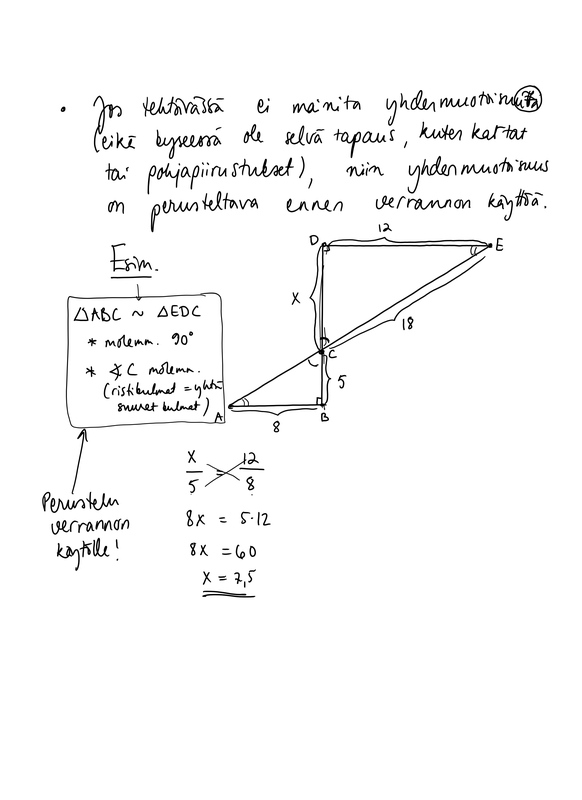 • Jos tehtävässä ei mainita yhdenmuotoisuutta
(eikä kyseessä ole selvä tapaus, kuten kartat
tai pohjapiirustukset), niin yhdenmuotoisuus
on perusteltava ennen verrannon käyttöä.
Esim.
△ABC ~ △EDC
* molemm. 90°
* ∢C molemm.
(ristikulmat = yhtä
suuret kulmat)
D
12
E
X
18
C
5
A
8
B
Perustelu
verrannon
käytölle!
x/5 = 12/8
8x = 5·12
8x = 60
x = 7,5